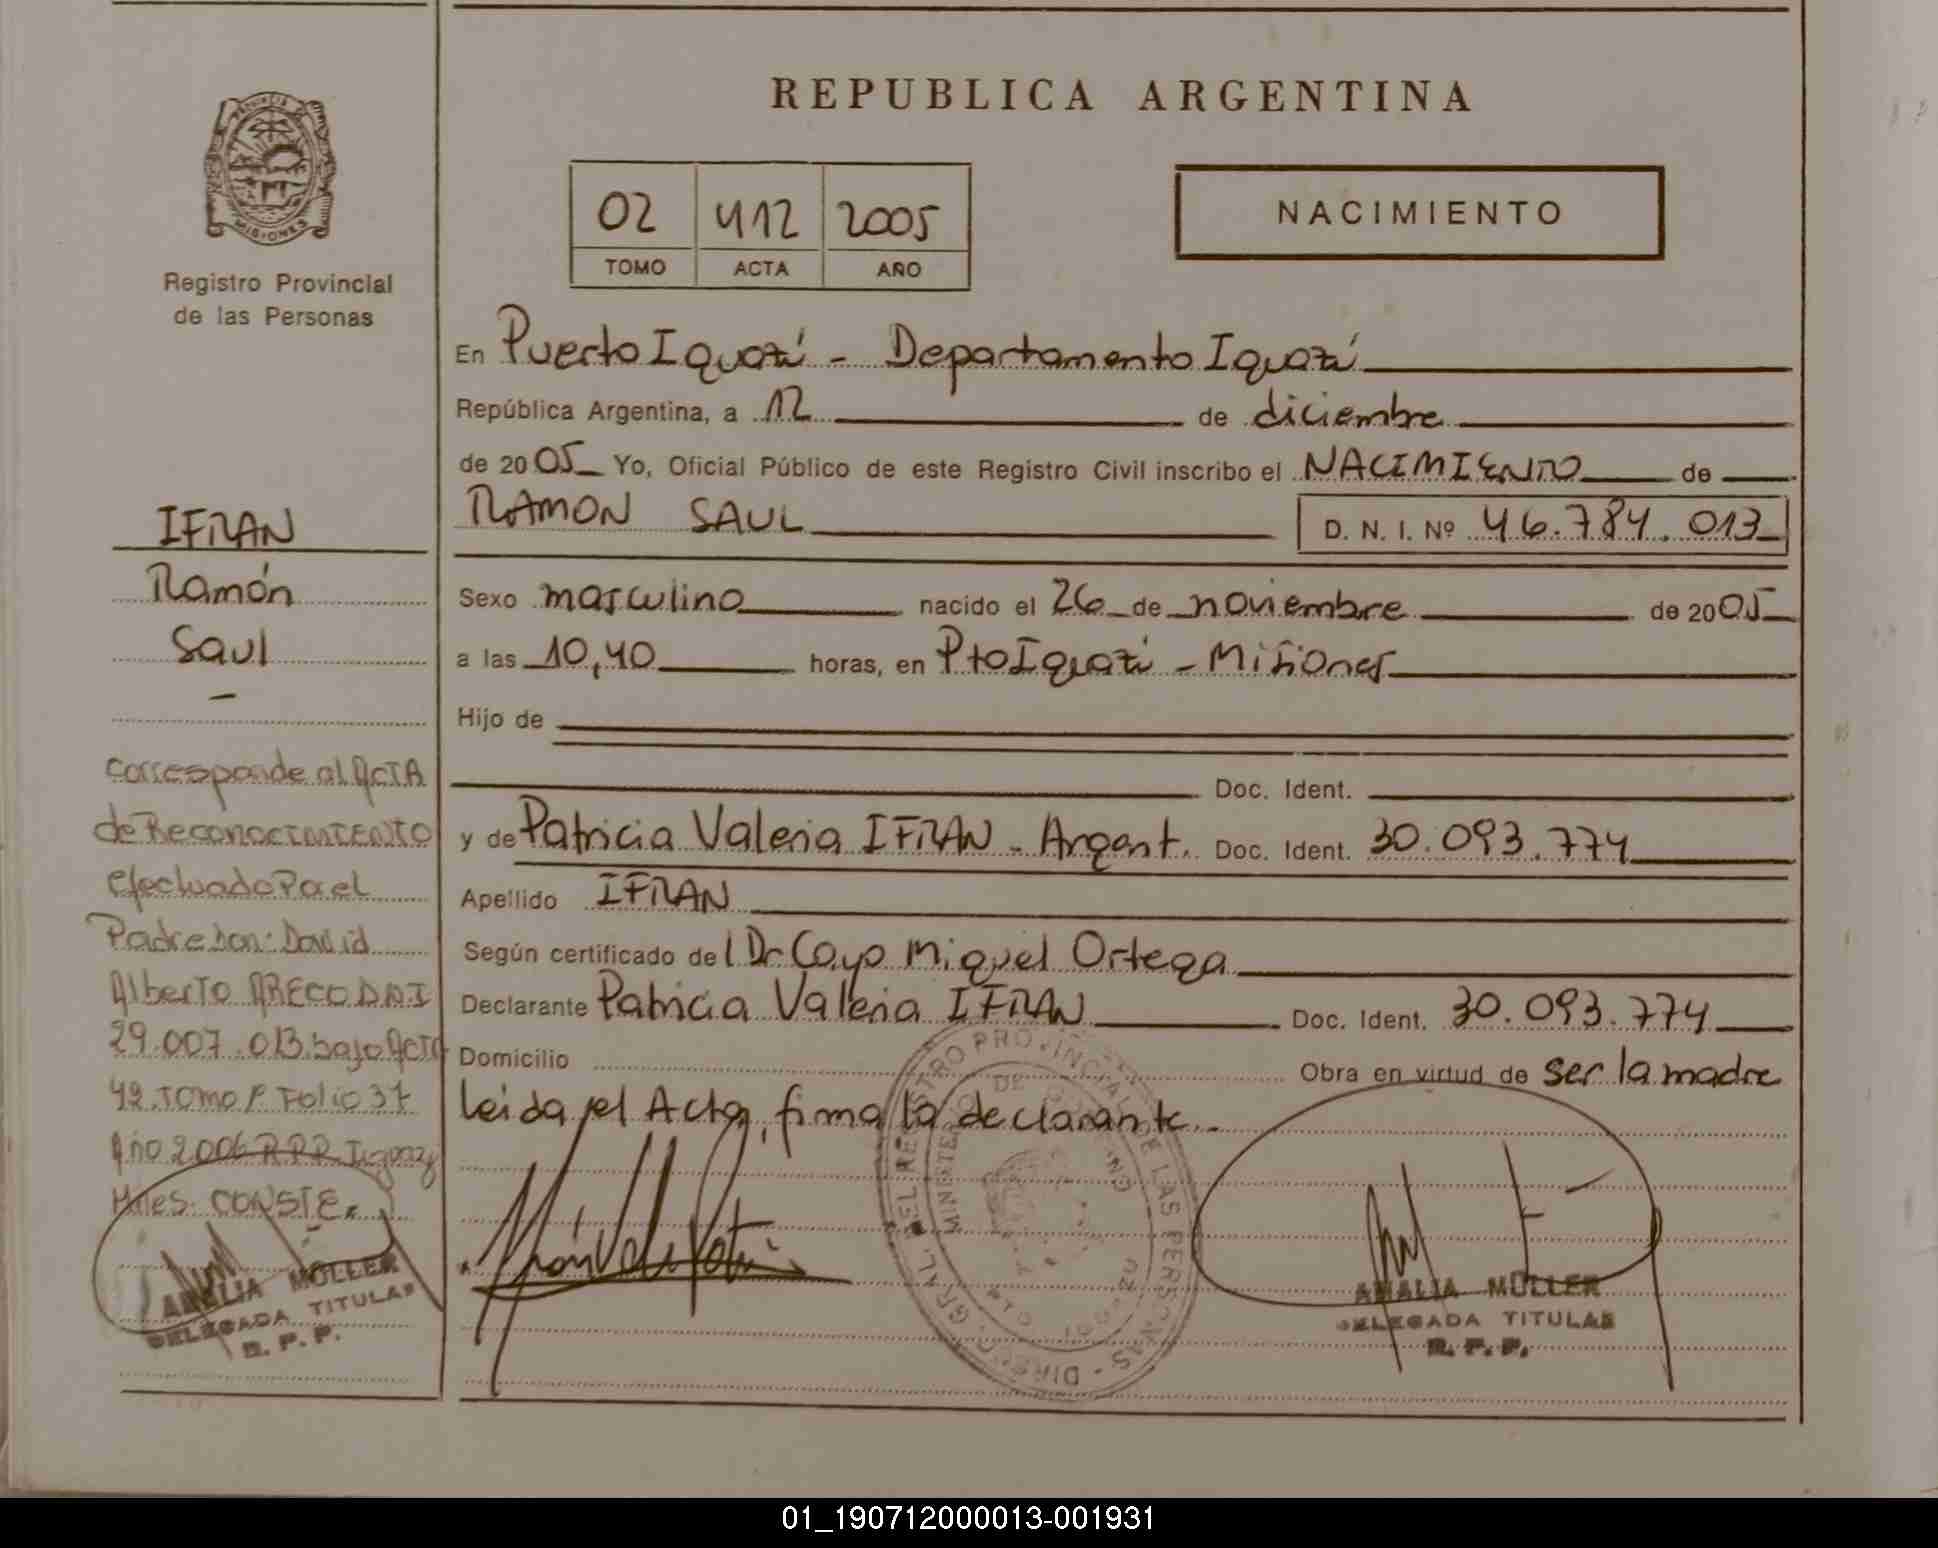 REPUBLICA ARGENTINA
PROVINCIA
MISIONES
Registro Provincial
de las Personas
02 412 2005
TOMO ACTA AÑO
NACIMIENTO
En Puerto Iguazú - Departamento Iguazú
República Argentina, a 12 de diciembre
de 2005 Yo, Oficial Público de este Registro Civil inscribo el NACIMIENTO de
RAMON SAUL D. N. I. Nº 46.784.013
Sexo masculino nacido el 26 de noviembre de 2005
a las 10,40 horas, en Pto Iguazú - Misiones
Hijo de
Doc. Ident.
y de Patricia Valeria IFRAN - Argent. Doc. Ident. 30.093.774
Apellido IFRAN
Según certificado del Dr Cayo Miguel Ortega
Declarante Patricia Valeria IFRAN Doc. Ident. 30.093.774
Domicilio Obra en virtud de ser la madre
leida el Acta, firma la declarante.-
IFRAN
Ramón
Saul
-
Corresponde al ACTA
de Reconocimiento
efectuado Por el
Padre Don: David
Alberto ARECO D.N.I
29.007.013 bajo ACTA
42 Tomo 1º Folio 37
Año 2006 R.P.P. Iguazú
Mnes. CONSTE.
AMALIA MÜLLER
DELEGADA TITULAR
R. P. P.
DIREC. GRAL. DEL REGISTRO PROVINCIAL DE LAS PERSONAS
MINISTERIO DE
AMALIA MÜLLER
DELEGADA TITULAR
R. P. P.
01_190712000013-001931